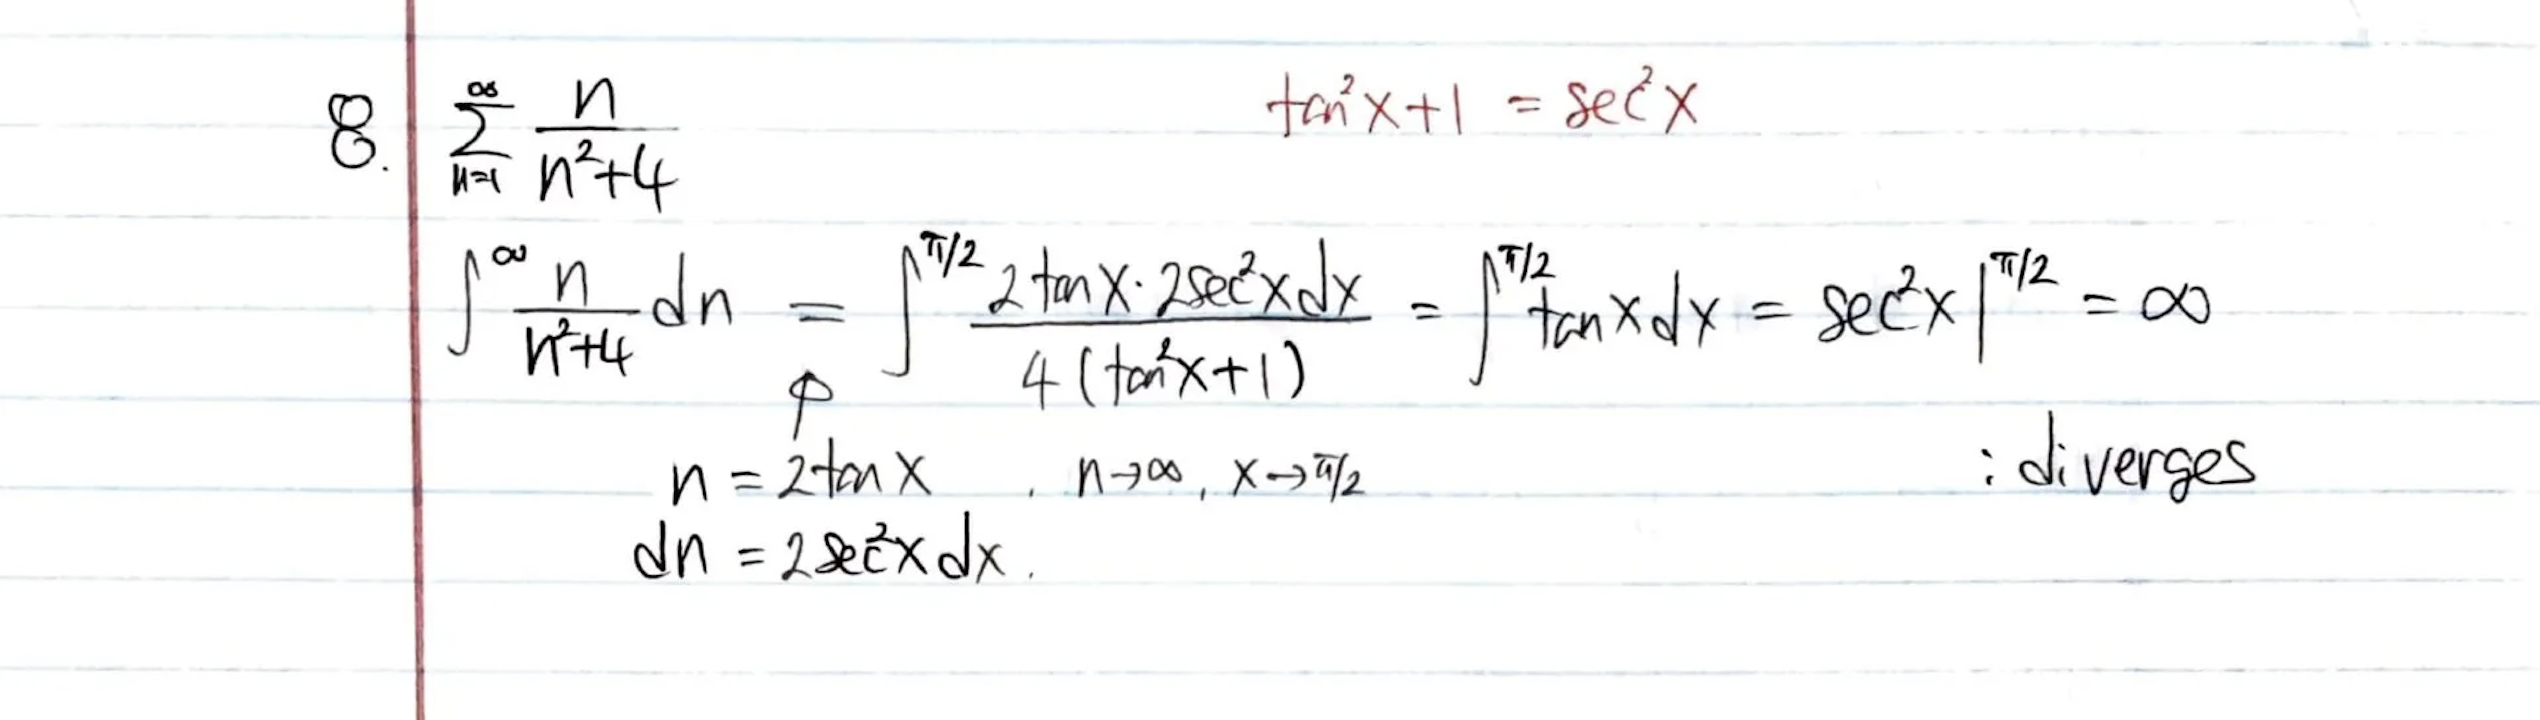 8. ∑_{n=1}^{∞} n/(n²+4) tan²x+1 = sec²x
∫^∞ n/(n²+4) dn = ∫^{π/2} 2tanx·2sec²xdx/4(tan²x+1) = ∫^{π/2} tanxdx = sec²x|^{π/2} = ∞
n = 2tanx , n→∞, x→π/2 : diverges
dn = 2sec²xdx.